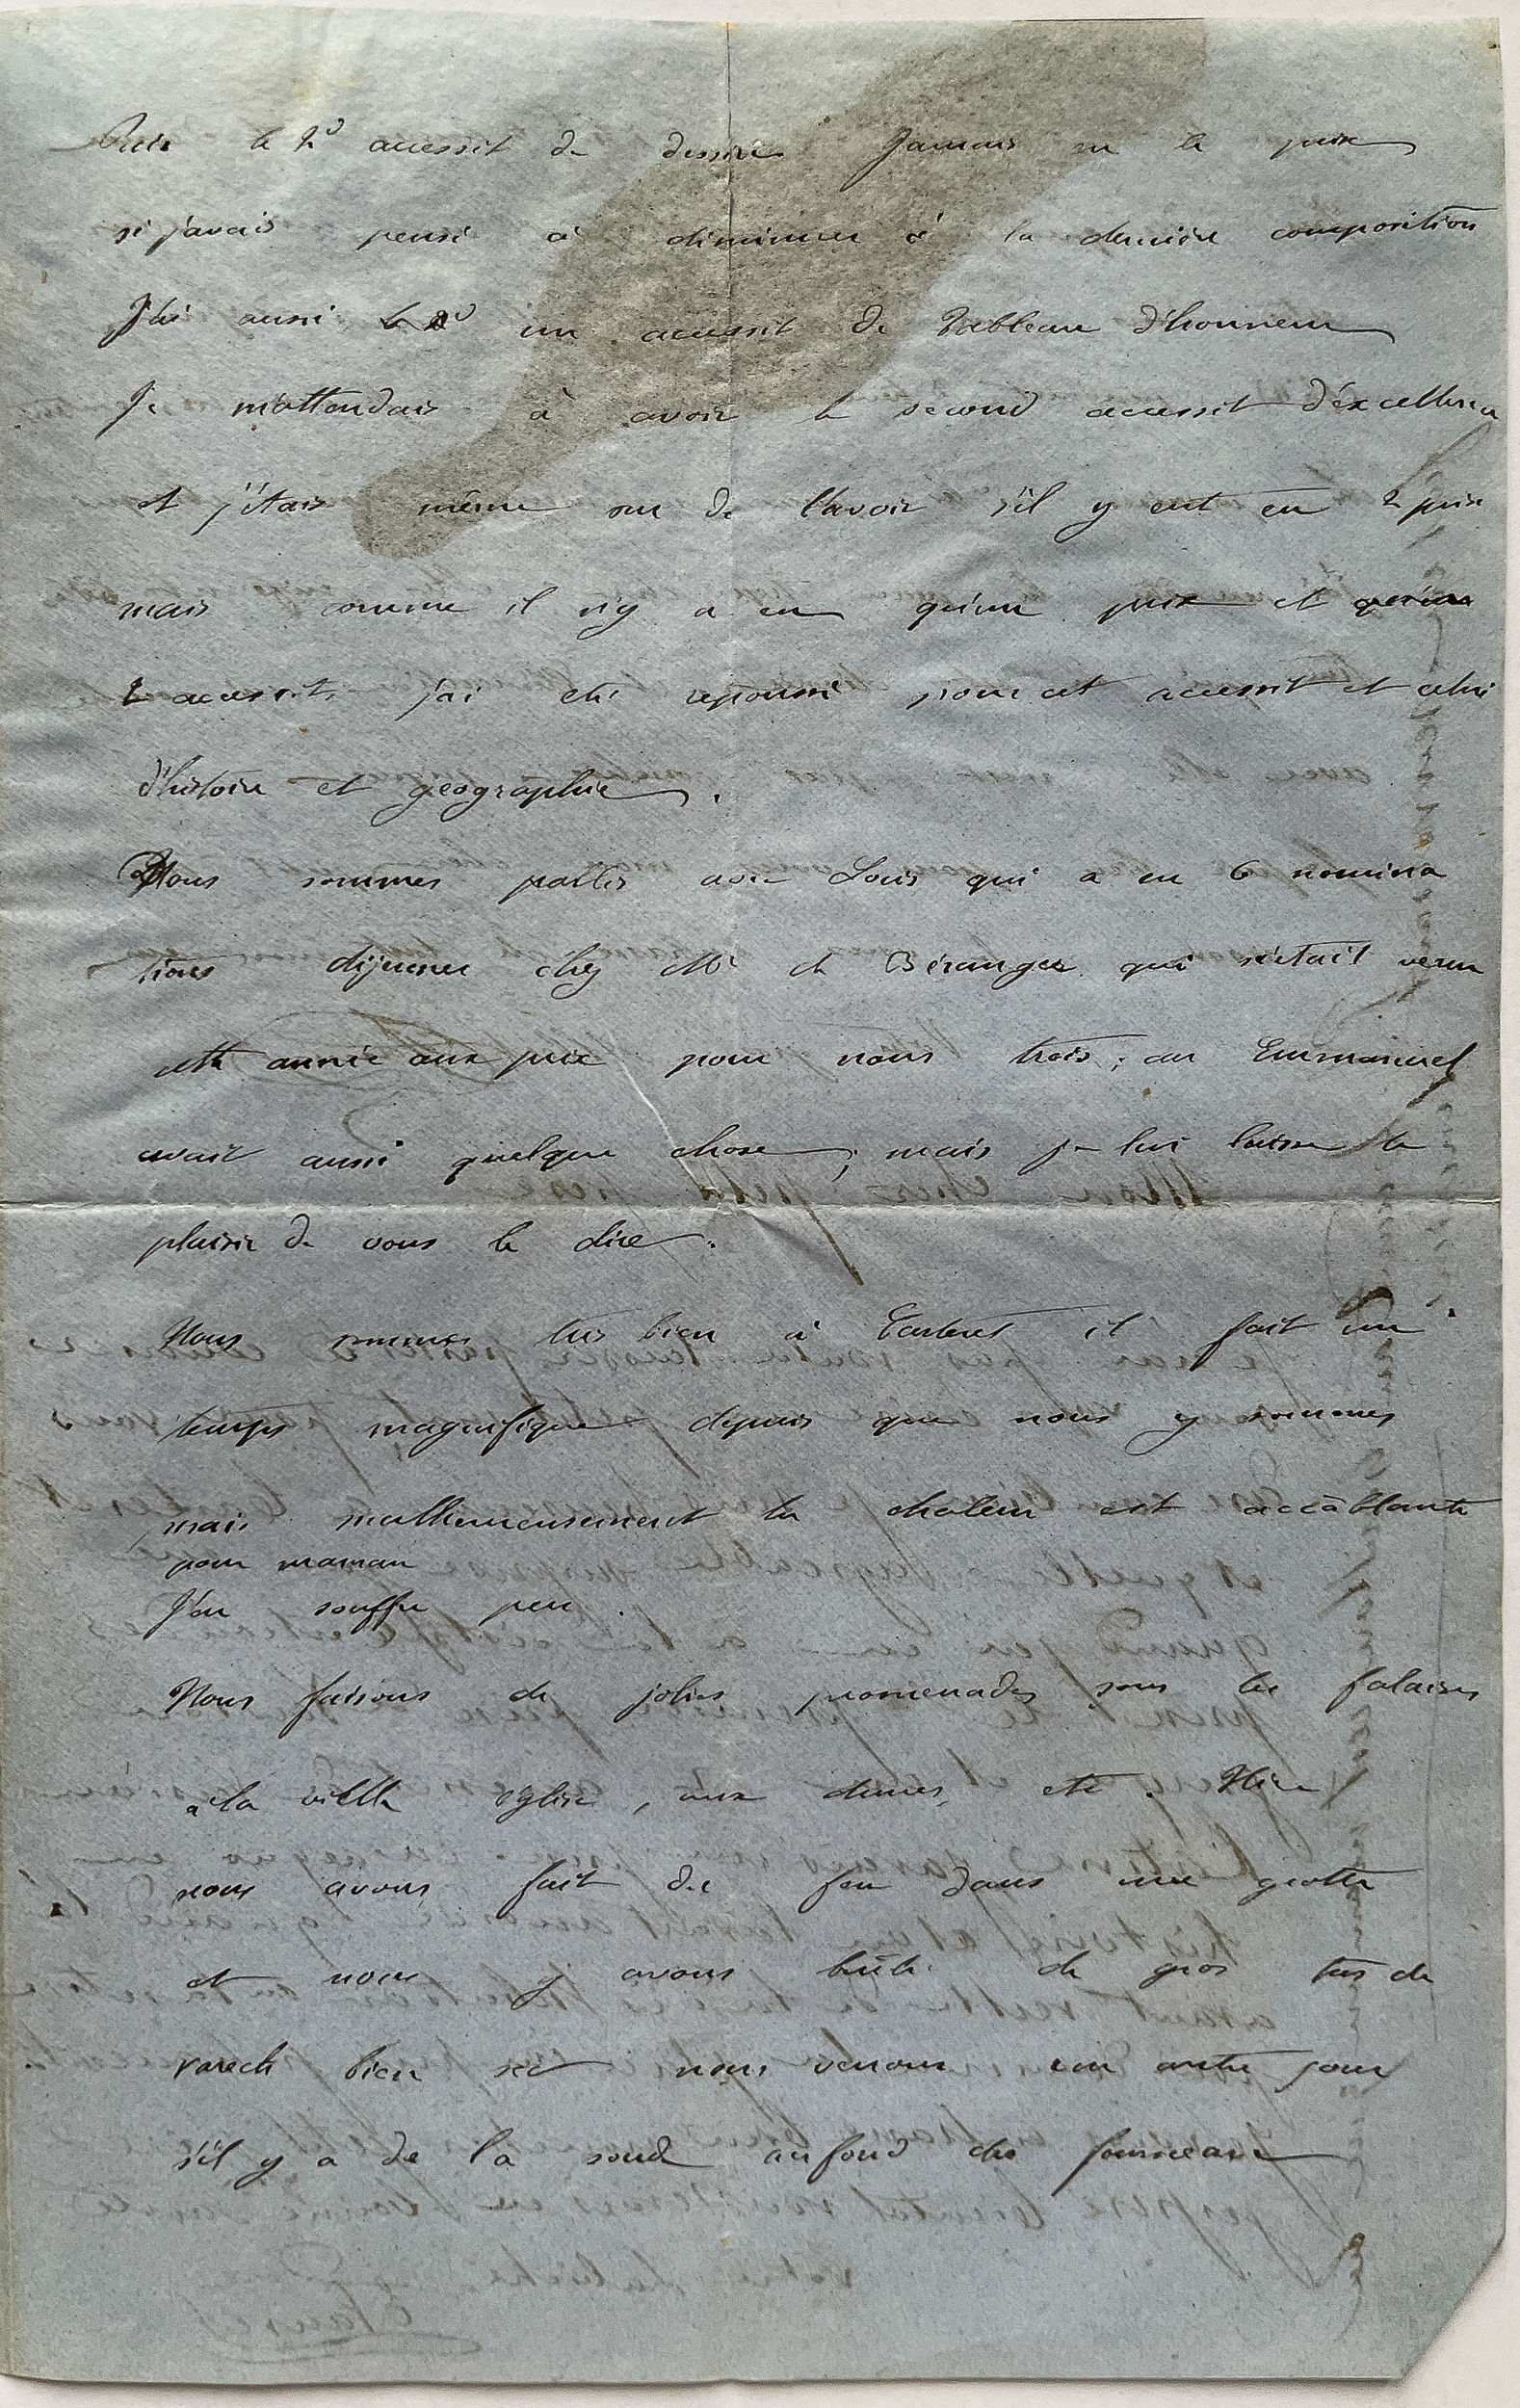 Puis le 2d accessit de dessin Jamais eu le prix
si j'avais pensé à diminuer à la dernière composition
J'ai aussi un accessit de tableau d'honneur
Je m'attendais à avoir le second accessit d'éxcellence
et j'étais même sur de l'avoir s'il y eut eu 2 prix
mais comme il n'y a eu qu'un prix et
2 accessits j'ai eté repoussé pour cet accessit et celui
d'histoire et geographie.
Nous sommes partis avec Louis qui a eu 6 nomina
tions déjeuner chez Mr de Béranger qui s'était venu
cette année aux prix pour nous trois; car Emmanuel
avait aussi quelque chose; mais je lui laisse le
plaisir de vous le dire.
Nous sommes très bien à Carteret il fait un
temps magnifique depuis que nous y sommes
mais malheureusement la chaleur est accablante
pour maman
J'en souffre peu.
Nous faisons de jolies promenades sous les falaises
a la vieille église, aux dunes, etc. Hier
nous avons fait du feu dans une grotte
et nous y avons brûlé de gros tas de
varech bien sec nous verrons un autre jour
s'il y a de la soude au fond du fourneau